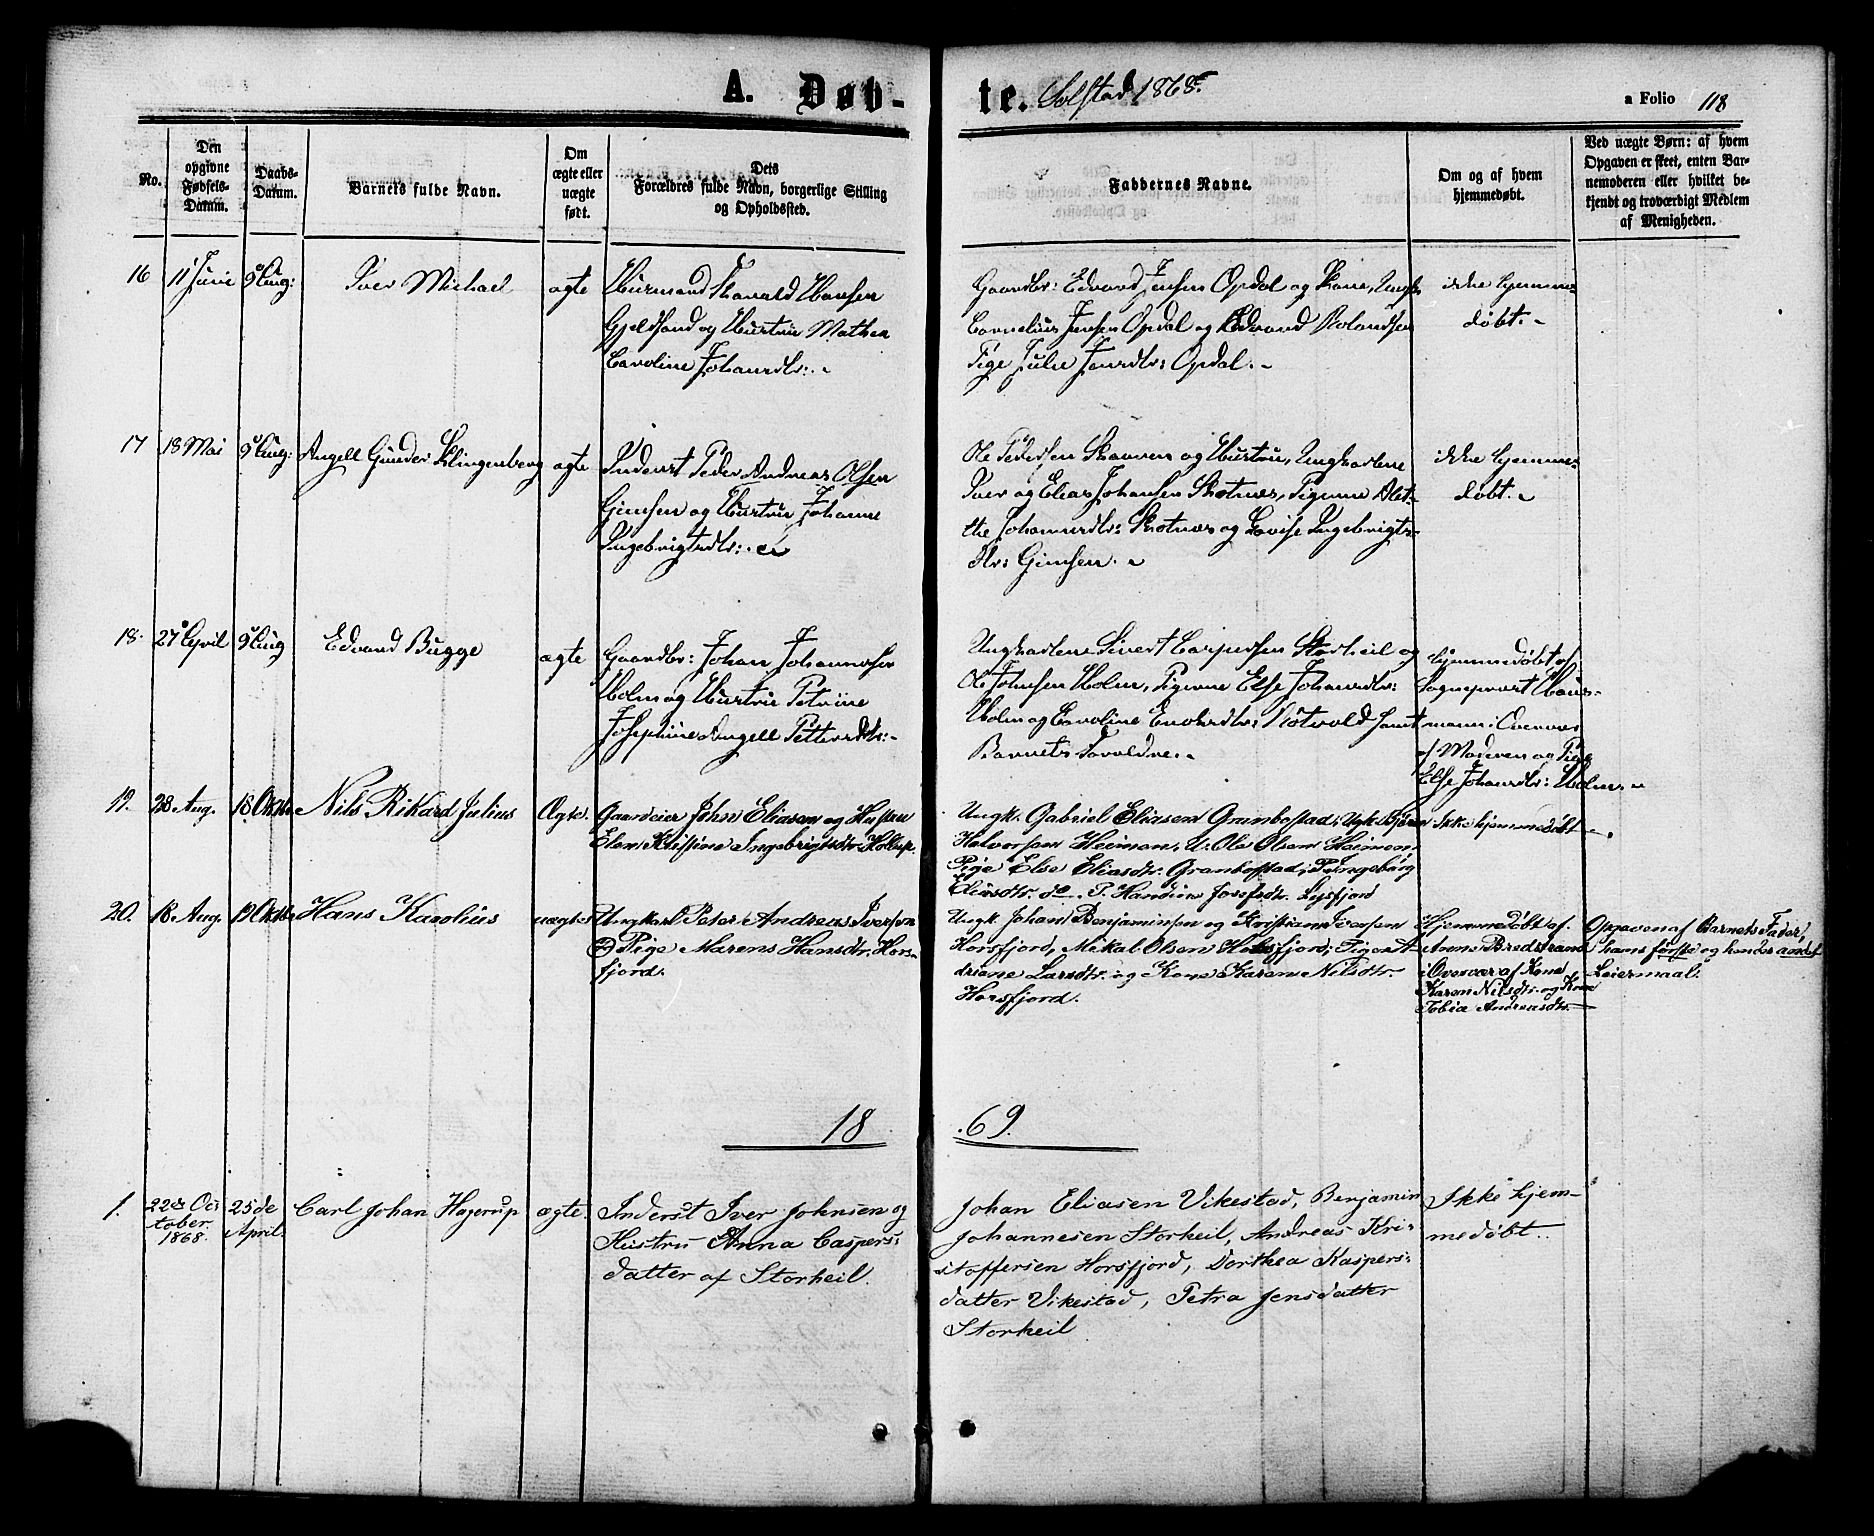 A. Døb-
te. Solstad 1868.
a Folio 118
No.
Den
opgivne
Fødsels-
Datum.
Daabs-
Datum.
Barnets fulde Navn.
Om
ægte eller
uægte
født.
Dets
Forældres fulde Navn, borgerlige Stilling
og Opholdssted.
Faddernes Navne.
Om og af hvem
hjemmedøbt.
Ved uægte Børn: af hvem
Opgaven er skeet, enten Bar-
nemoderen eller hvilket be-
kjendt og troværdigt Medlem
af Menigheden.
16
11 Juni
9 Aug:
Iver Michael
ægte
Huusmand Harald Hansen
Gjeldsand og Hustru Mathea
Caroline Johansdtr:
Gaardbr: Edvard Jensen Opdal og Kone, Ungk.
Cornelius Jensen Opdal og Edvard Rolandsen
Pige Julie Jensdtr: Opdal.
ikke hjemme-
døbt.
17
18 Mai
9 Aug:
Angell Gunder Klingenberg
ægte
Inderst Peder Andreas Olsen
Gimsen og Hustru Johanne
Ingebrigtsdtr:
Ole Pedersen Skaaren og Hustru, Ungkarlene
Iver og Elias Johansen Skotnes, Pigerne Alet-
the Johannesdtr: Skotnes og Lovise Ingebrigts-
dtr: Gimsen.
ikke hjemme-
døbt.
18.
27 April
9 Aug
Edvard Bugge
ægte
Gaardbr: Johan Johannesen
Holm og Hustru Petrine
Josephine Angell Pettersdtr:
Ungkarlene Sivert Caspersen Storheil og
Ole Johnsen Holm, Pigerne Else Johansdtr:
Holm og Caroline Enoksdtr: samt
Barnets Forældre.
hjemmedøbt af
Sogneprest Haus-
mann i Overvær
af Moderen og Pige
Else Johansdtr: Holm.
19.
28 Aug.
18 Oktbr
Nils Rikard Julius
Ægte.
Gaardeier John Eliasen og Hustru
Elen Kristine Ingebrigtsdtr. Kollup.
Ungk. Gabriel Eliasen Grambostad, Ungk. Bjørn
Halvorsen Heimon, U. Ole Olsen Heimon,
Pige Else Eliasdtr. Grambostad, P. Ingeborg
Eliasdtr. do P. Handine Josefsdtr. Lysfjord
Ikke hjemmedøbt
20.
18 Aug.
19 Oktbr
Hans Karolius
uægte
Ungkarl Peter Andreas Iversen
og Pige Marens Hansdtr. Hors-
fjord.
Ungk. Johan Benjaminsen og Kristian Jensen
Horsfjord, Mikal Olsen Horsfjord, Pigen A-
driane Larsdtr. og Kone Karen Nilsdtr.
Horsfjord.
Hjemmedøbt af
Anne Bredstrand
i Overvær af Kone
Karen Nilsdtr. og Kone
Tobia Andreasdtr.
Opgaven af Barnets Fader,
hans første og hendes andet
Leiermaal.
18 69.
1.
22de Oc-
tober
1868.
25de
April.
Carl Johan Høgerup
ægte.
Inderst Iver Johnsen og
Hustru Anna Caspers-
datter af Storheil.
Johan Eliasen Vikestad, Benjamin
Johannesen Storheil, Andreas Kri-
stoffersen Horsfjord, Dorthea Kaspers-
datter Vikestad, Petra Jensdatter
Storheil
Ikke hjem-
medøbt.